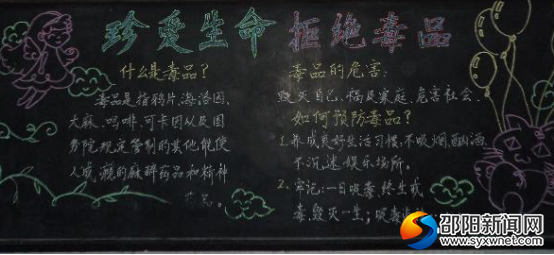 珍爱生命 拒绝毒品
什么是毒品？
毒品是指鸦片、海洛因、
大麻、吗啡、可卡因以及国
务院规定管制的其他能使
人成瘾的麻醉药品和精神
药品。
毒品的危害：
毁灭自己、祸及家庭、危害社会、
如何预防毒品？
1.养成良好生活习惯，不吸烟、酗酒
不沉迷娱乐场所。
2.牢记：一日吸毒，终生戒
毒，毁灭一生；吸毒
邵阳新闻网
www.syxwnet.com